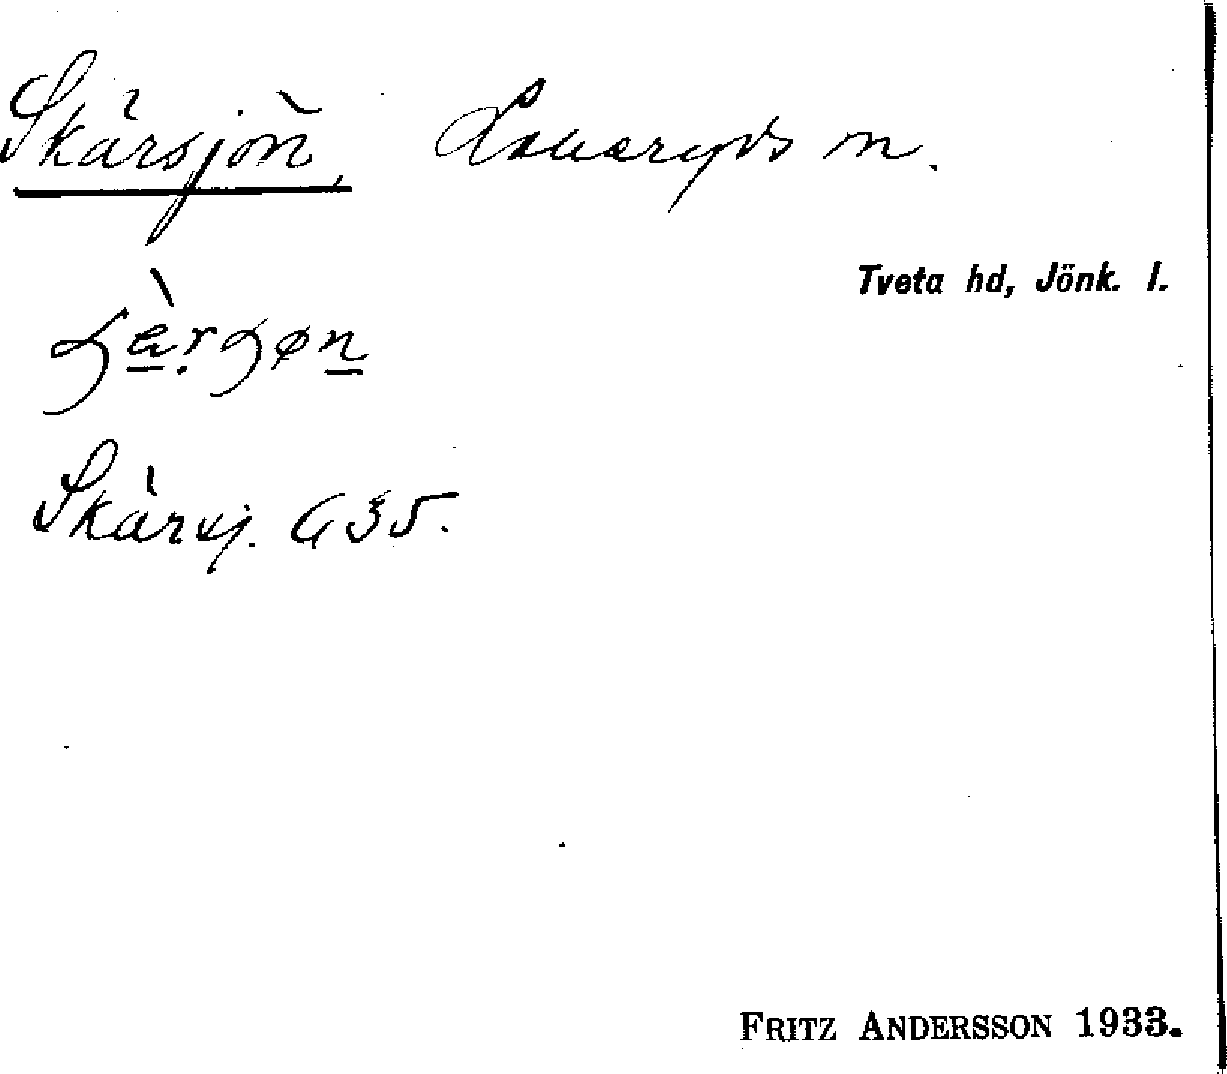 Skärsjön, Lekeryds sn.
Tveta hd, Jönk. l.
Skärsj. G 35.
FRITZ ANDERSSON 1933.